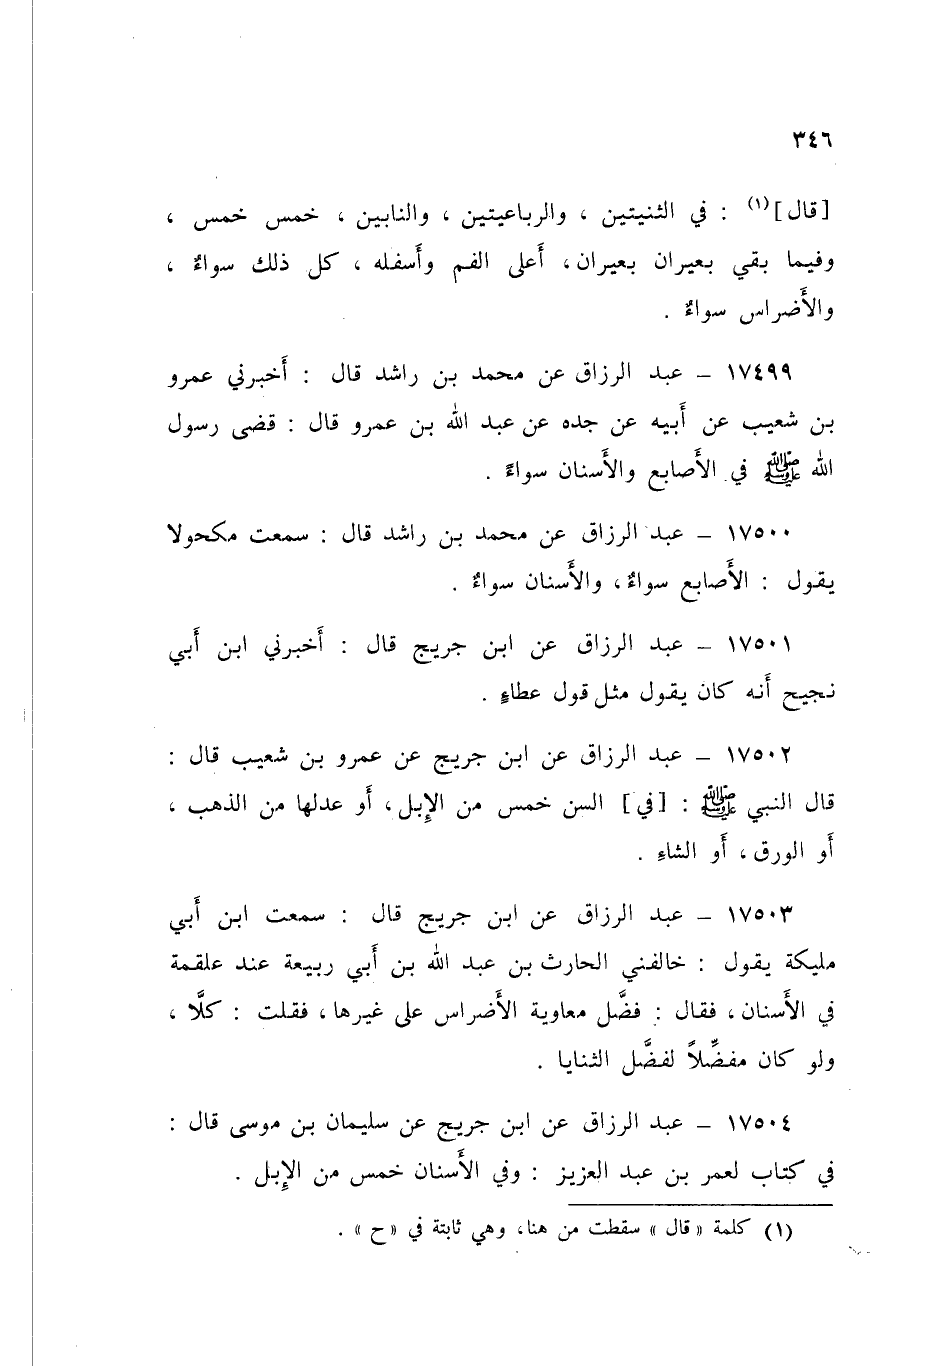 ٣٤٦
[قال](١) : في الثنيتين ، والرباعيتين ، والنابين ، خمس خمس ،
وفيما بقي بعيران بعيران، أَعلى الفم وأَسفله ، كل ذلك سواءٌ ،
والأَضراس سواءٌ .
١٧٤٩٩ – عبد الرزاق عن محمد بن راشد قال : أَخبرني عمرو
بن شعيب عن أَبيه عن جده عن عبد الله بن عمرو قال : قضى رسول
الله ﷺ في الأَصابع والأَسنان سواءً .
١٧٥٠٠ – عبد الرزاق عن محمد بن راشد قال : سمعت مكحولا
يقول : الأَصابع سواءٌ، والأَسنان سواءٌ .
١٧٥٠١ – عبد الرزاق عن ابن جريج قال : أَخبرني ابن أَبي
نجيح أَنه كان يقول مثل قول عطاءٍ .
١٧٥٠٢ – عبد الرزاق عن ابن جريج عن عمرو بن شعيب قال :
قال النبي ﷺ : [في] السن خمس من الإِبل، أَو عدلها من الذهب ،
أَو الورق، أَو الشاءِ .
١٧٥٠٣ – عبد الرزاق عن ابن جريج قال : سمعت ابن أَبي
مليكة يقول : خالفني الحارث بن عبد الله بن أَبي ربيعة عند علقمة
في الأَسنان، فقال : فضَّل معاوية الأَضراس على غيرها، فقلت : كلَّا ،
ولو كان مفضِّلاً لفضَّل الثنايا .
١٧٥٠٤ – عبد الرزاق عن ابن جريج عن سليمان بن موسى قال :
في كتاب لعمر بن عبد العزيز : وفي الأَسنان خمس من الإِبل .
(١) كلمة «قال» سقطت من هنا، وهي ثابتة في «ح» .